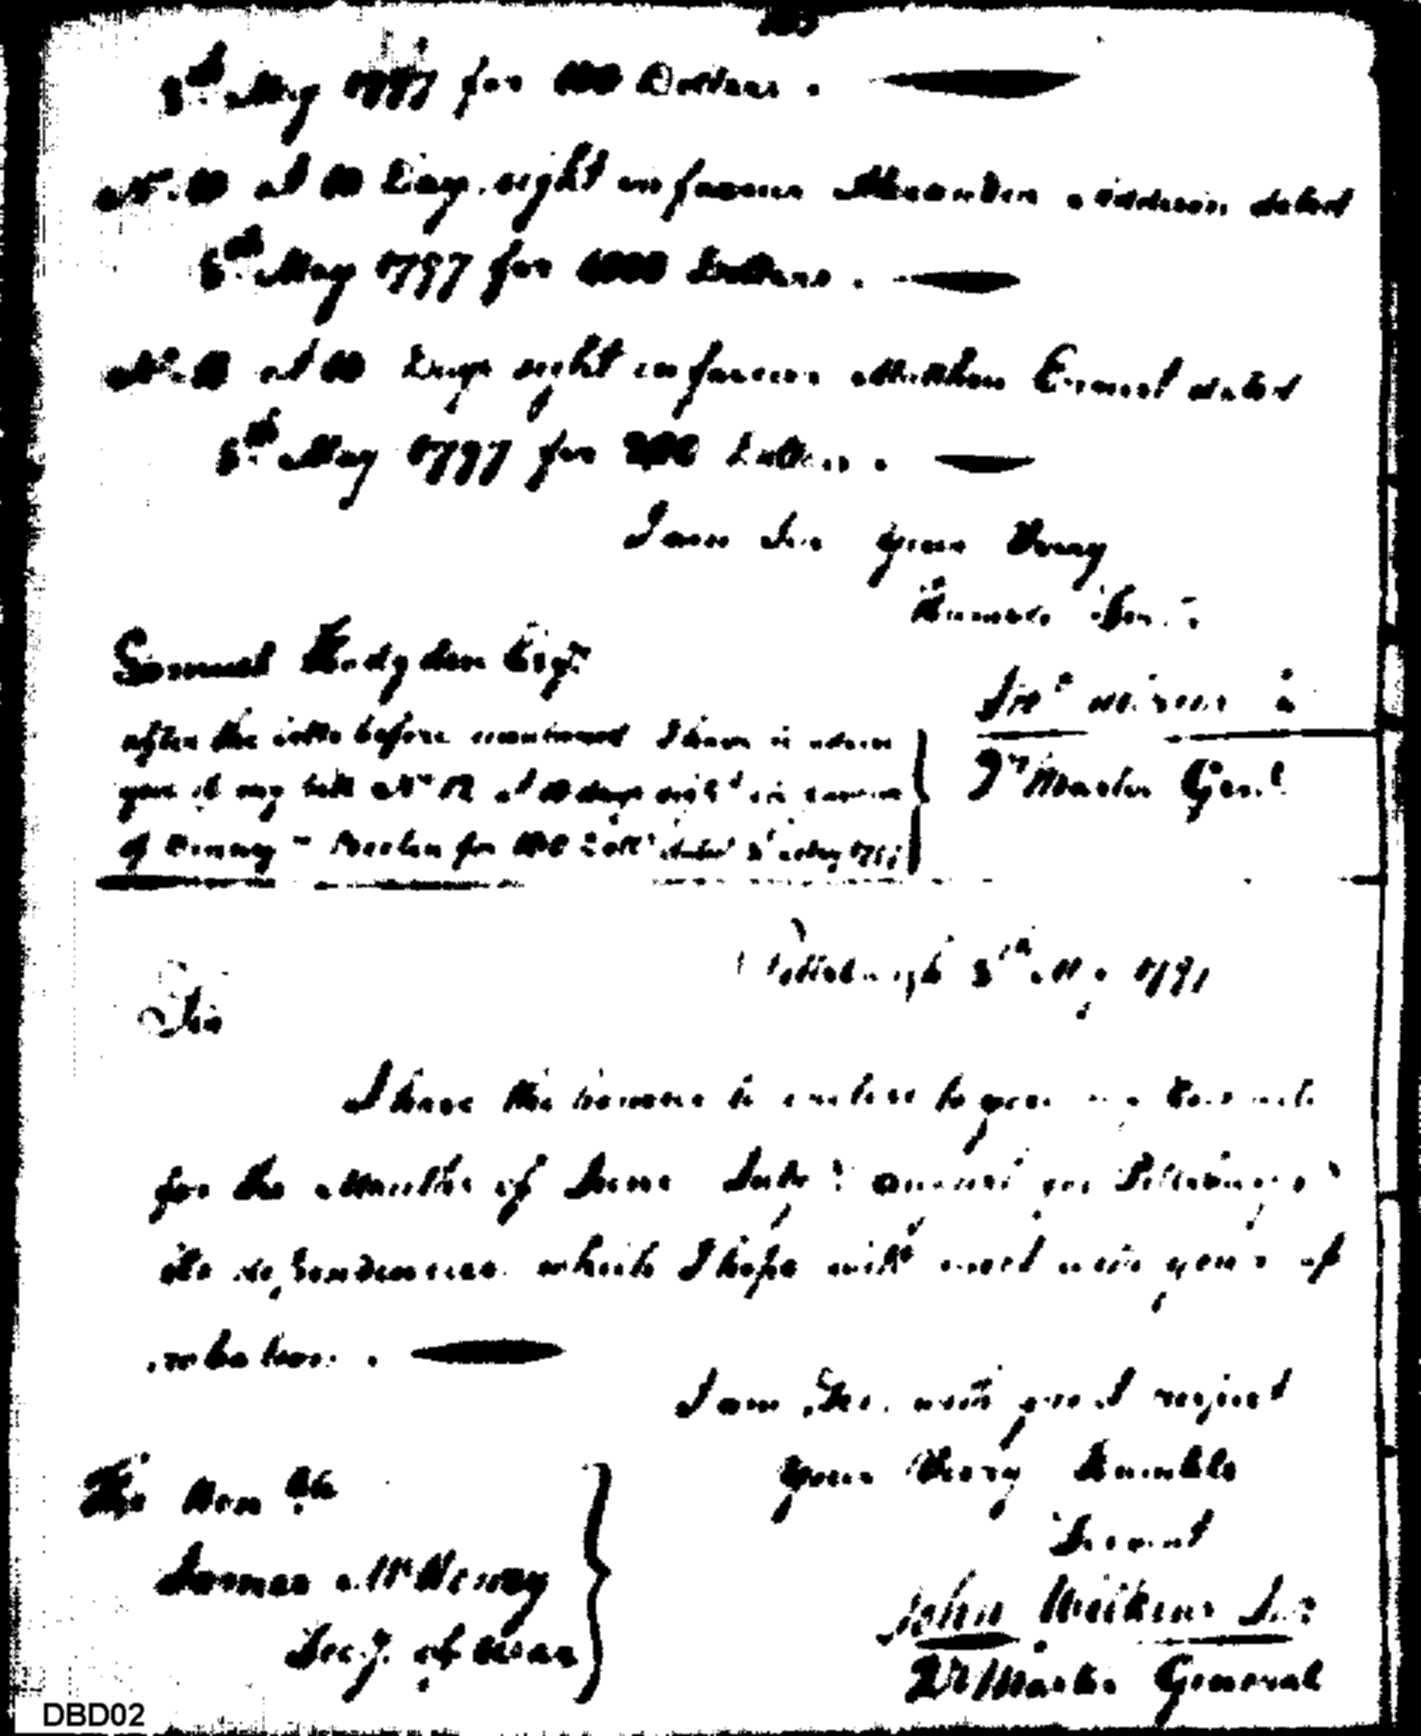 8th May 1797 for 100 Dollars.
No. 10 at 10 Days sight in favour Alexander Addison dated
8th May 1797 for 1000 Dollars.
No. 11 at 10 Days sight in favour Matthew Ernest dated
8th May 1797 for 200 Dollars.
I am Sir your Very
Humble Servt
Samuel Hodgdon Esqr.
Jno Wilkins Jr
Qr Master Genl
after the bills before mentioned I have to advise
you of my bill No 12 at 10 days sight in favour
of Denny & Beelen for Dolls dated 8 May 1797
Pittsburgh 8th May 1797
Sir
I have the honour to enclose to you my Estimate
for the Months of June July & August for Pittsburgh &
its dependencies which I hope will meet with your ap
robation.
I am Sir with great respect
your Very Humble
Servant
The Honble
James McHenry
Secy. of War
John Wilkins Jur
Qr Master General
DBD02